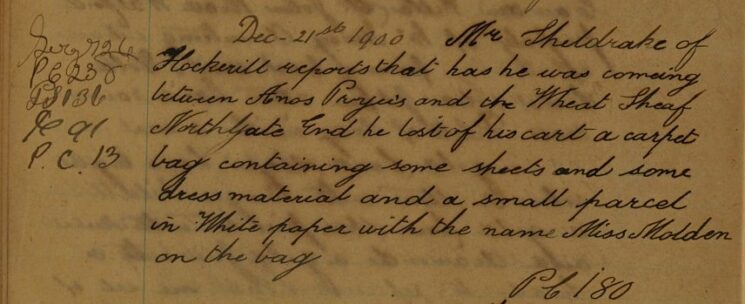 Dec - 21st 1900 Mr Sheldrake of
Hockerill reports that has he was comeing
between Anos and the Wheat Sheaf
NorthGate End he lost of his cart a carpet
bag containing some sheets and some
dress material and a small parcel
in White paper with the name Miss Molden
on the bag
PC 180
Serg
PC 238
PS 136
PC 91
P.C. 13